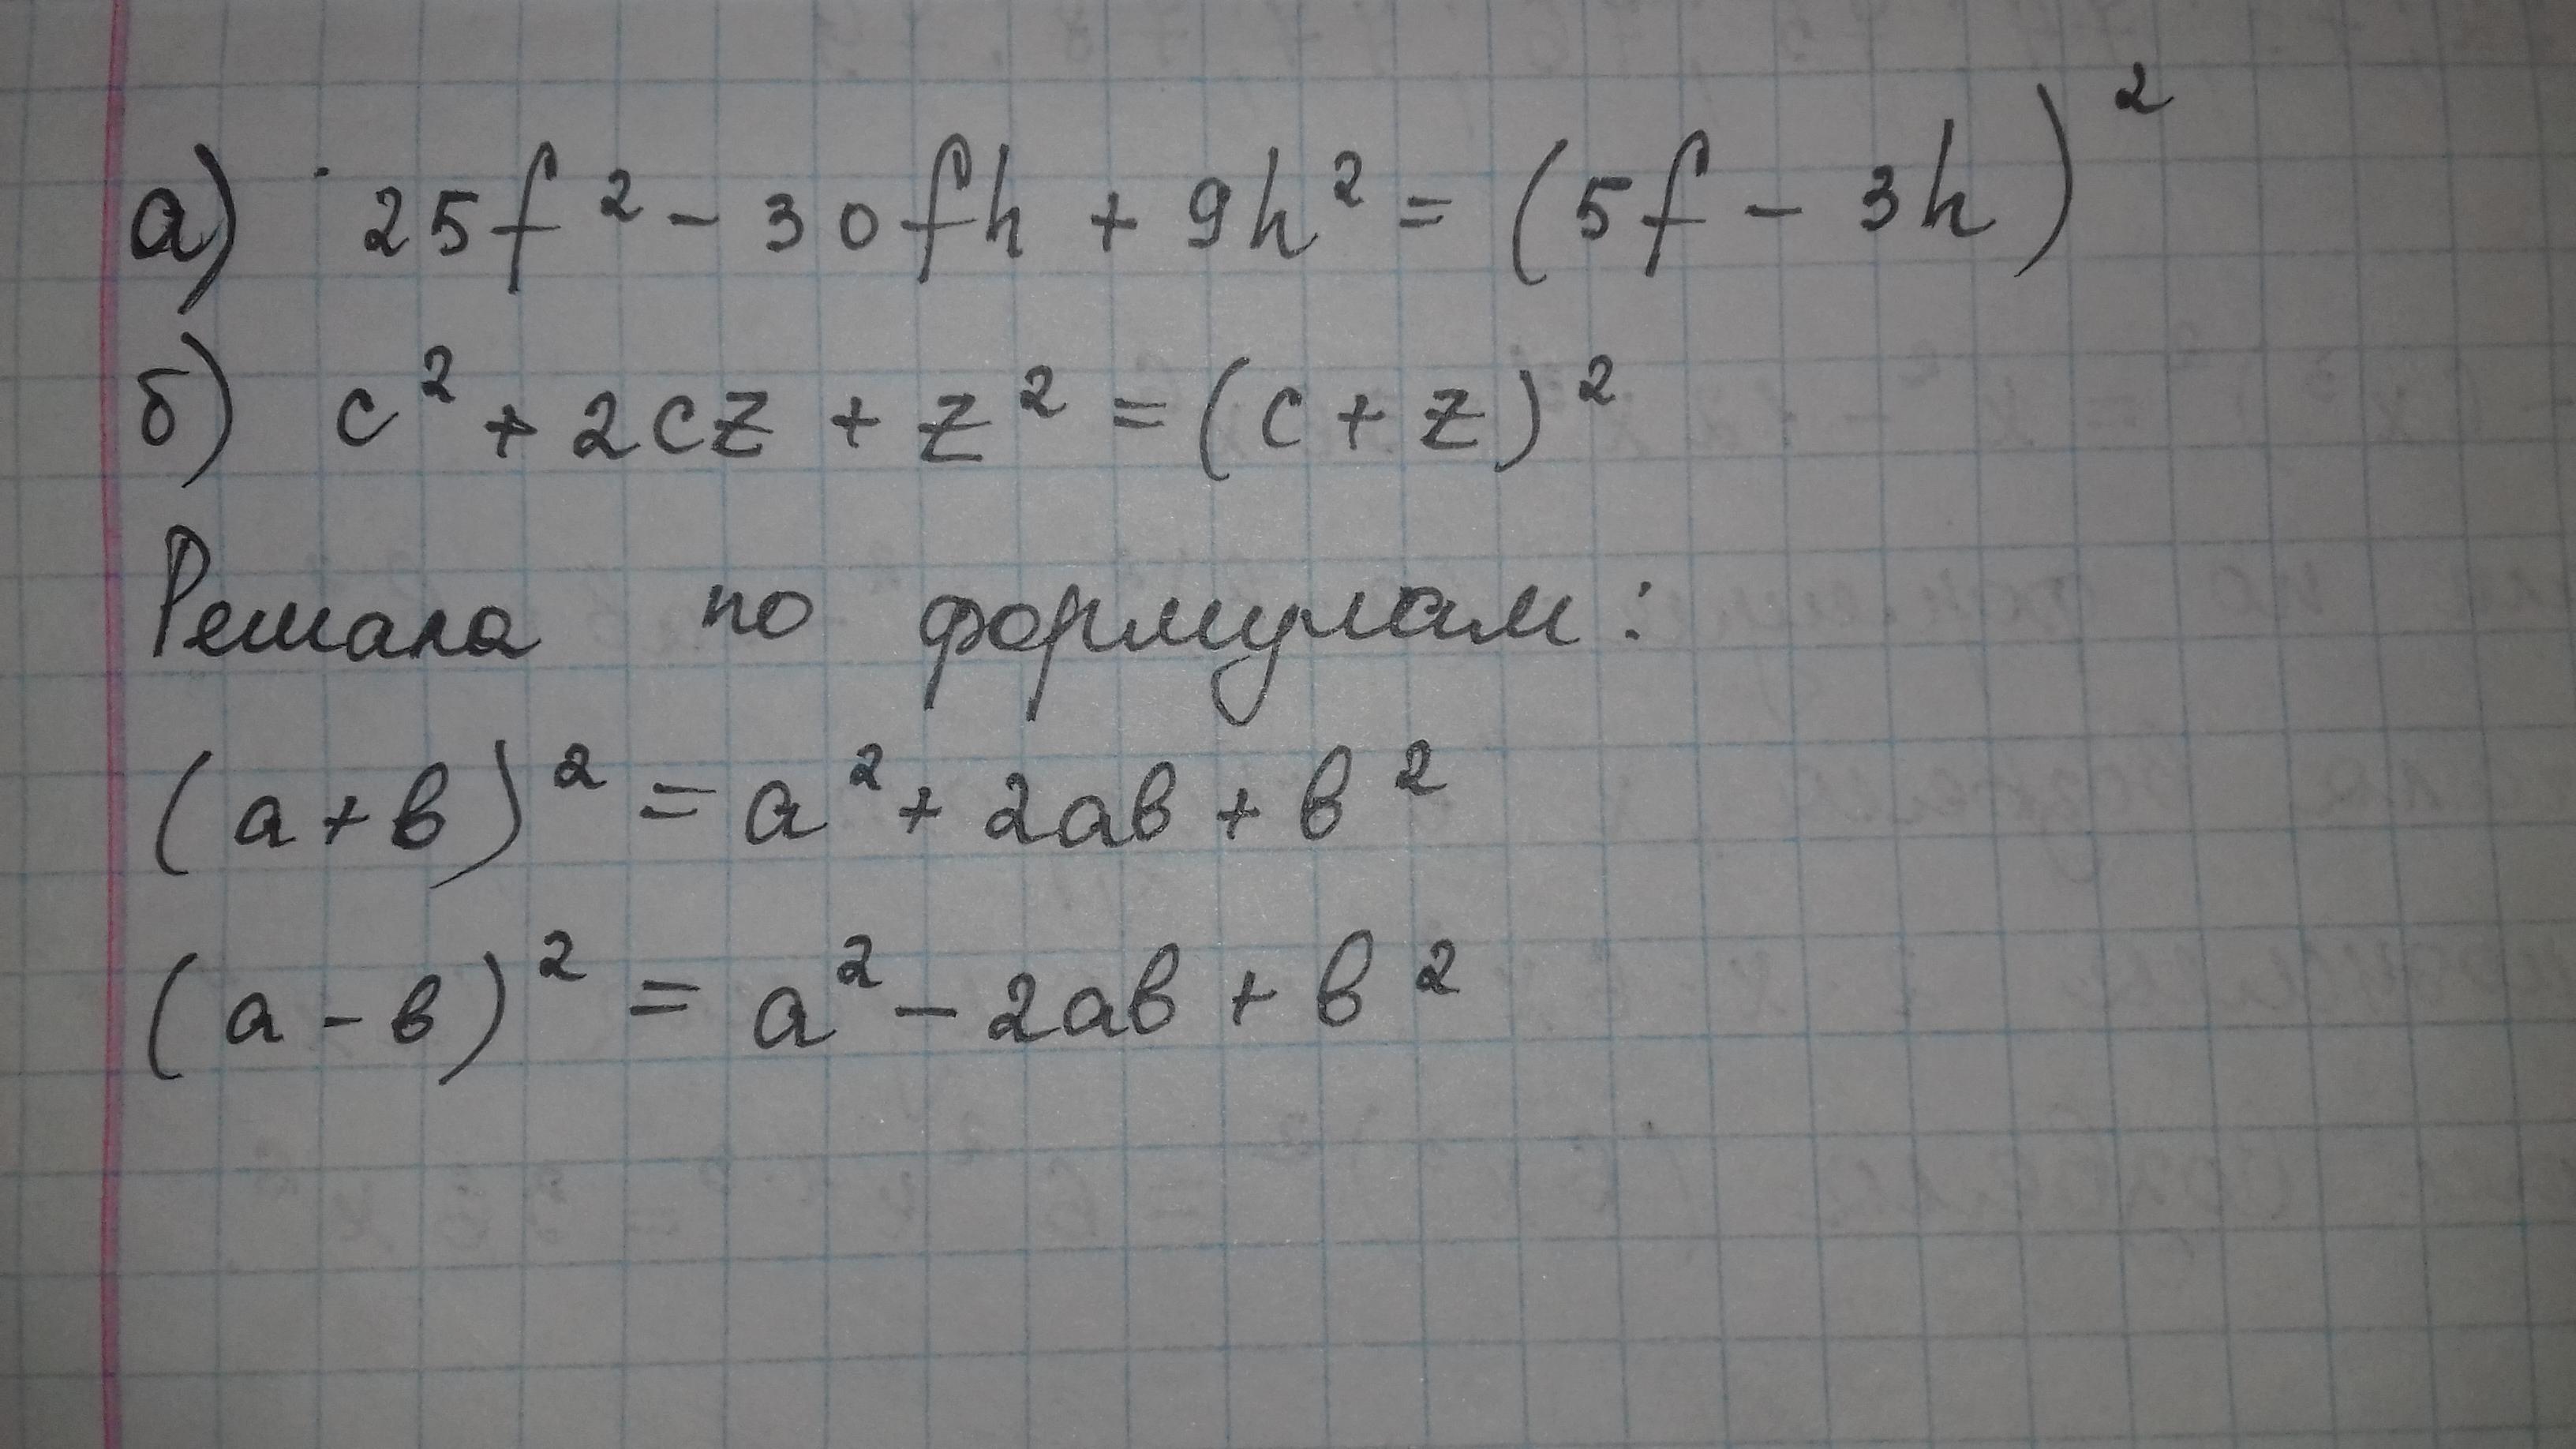 а) 25f² - 30fh + 9h² = (5f - 3h)²
б) c² + 2cz + z² = (c + z)²
Решала по формулам:
(а+в)² = а² + 2ав + в²
(а-в)² = а² - 2ав + в²